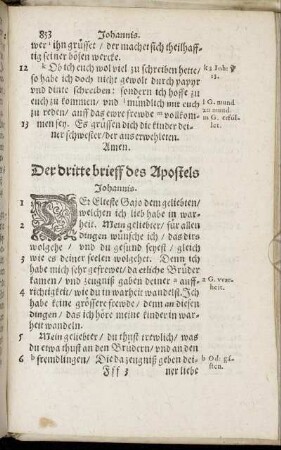 853 Johannis.
wer ihn grüsset / der machet sich theilhaff-
tig seiner bösen wercke.
12 k Ob ich euch wol viel zu schreiben hette/ k 3 Joh: ℣
so habe ich doch nicht gewolt durch papyr 13.
und dinte schreiben: sondern ich hoffe zu
euch zu kommen / und l mündlich mit euch l G. mund
zu reden / auff das ewre frewde m vollkom- zu mund.
13 men sey. Es grüssen dich die kinder dei- m G. erfül-
ner schwester / der auserwehleten. let.
Amen.
Der dritte brieff des Apostels
Johannis.
1 DEr Elteste Gajo dem geliebten/
welchen ich lieb habe in war-
2 heit. Mein geliebter / für allen
dingen wünsche ich / das dirs
wolgehe / und du gesund seyest / gleich
3 wie es deiner seelen wolgehet. Denn ich
habe mich sehr gefrewet / da etliche Brüder
kamen / und zeugniß gaben deiner a auff-
4 richtigkeit / wie du in warheit wandelst. Ich a G. war-
habe keine grössere frewde / denn an diesen heit.
dingen / das ich höre meine kinder in war-
heit wandeln.
5 Mein geliebter / du thust trewlich / was
du etwa thust an den Brüdern / und an den
6 b frembdlingen / Die da zeugniß geben dei- b Od: gä-
Fff 3 ner liebe sten.